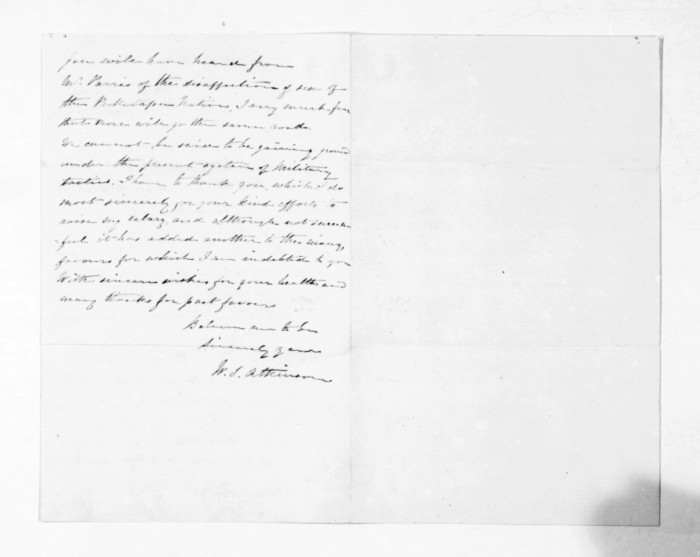 You will have heard from
Mr. Parris of the disaffection of some of
the Natives, I very much fear
that ours will go the same road.
We cannot be said to be gaining ground
under the present system of Military
tactics. I have to thank you, which I do
most sincerely for your kind efforts to
raise my salary and although not success
-ful it has added another to the many
favours for which I am indebted to you
With sincere wishes for your health and
many thanks for past favours
Believe me to be
Sincerely yours
W. S. Atkinson